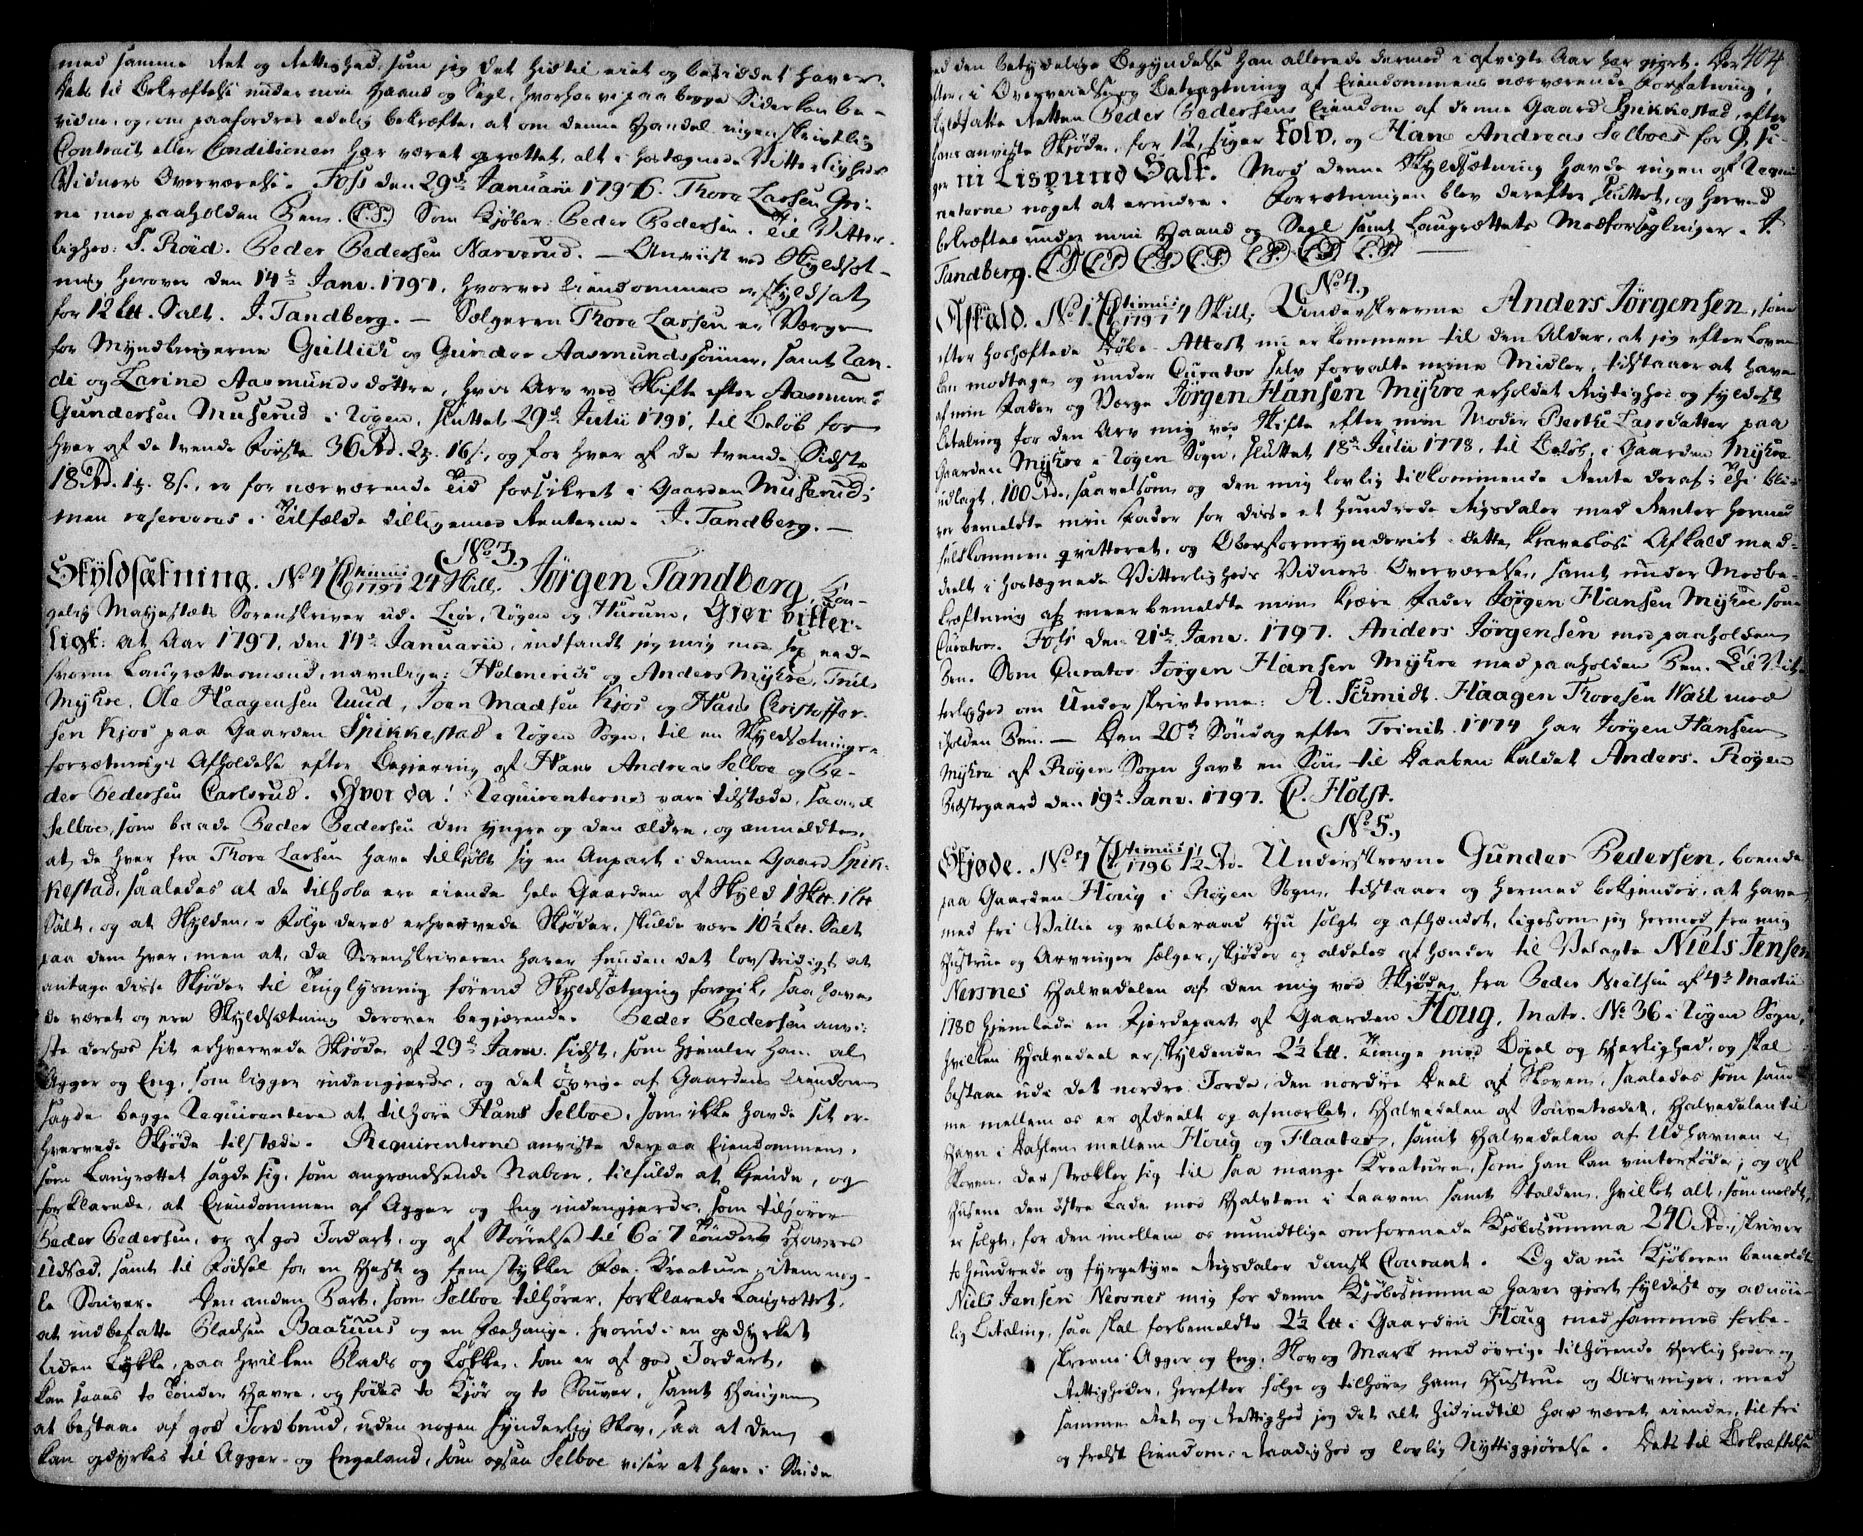 med samme Ret og Rettighed, som jeg det hidtil eiet og besiddet haver.
Dets til Bekræftelse under min Haand og Segl, hvorhos vi paa begge Sider kan be-
vidne, og, om paafordres edelig bekræfte, at om denne Handel ingen skriftlig
Contract eller Conditioner har været oprettet, alt i hostægnede Vitterligheds
Vidners Overværelse. Foss den 29de Januarii 1796. Thore Larsen Gri-
ne med paaholden Pen. (L.S.) Som Kjøber: Peder Pedersen. Til Vitter-
lighed: T. Röed. Peder Pedersen Narverud. — Anviist ved Skyldsæt-
ning herover den 14de Janv. 1797, hvorved Eiendommen er skyldsat
for 12 Ltt. Salt. J. Tandberg. — Sælgeren Thore Larsen er Værge
for Myndlingerne Gullich og Gunder Aasmundssønner, samt Ran-
di og Larine Aasmundsdøttre, hvis Arv ved Skifte efter Aasmund
Gundersen Muserud i Røgen, sluttet 29de Julii 1791, til Beløb for
hver af de tvende Første 36 Rd. 2 16 s., og for hver af de tvende Sidste
18 Rd. 1 8 s., er for nærværende Tid forsikret i Gaarden Muserud;
men reserveres i Tilfælde tilligemed Renterne. J. Tandberg. —
No 3.
Skyldsætning. No 4 1797 24 Skill. Jörgen Tandberg, Kon-
gelig Majestæts Sorenskriver udi Lier, Røgen og Hurum, Gjør vitter-
ligt: at Aar 1797, den 14de Januarii, indfandt jeg mig med sex eed-
svorne Laugrettesmænd, navnlige: Holmerich og Anders Myhre, Truls
Myhre, Ole Haagensen Ruud, Joen Madsen Kjos og Hans Christoffer-
sen Kjos paa Gaarden Spikkestad i Røgen Sogn, til en Skyldsætnings-
forretnings Afholdelse efter Begjering af Hans Andreas Selboe og Pe-
der Pedersen Carlsrud. Hvor da! Requirenterne vare tilstæde, saavel
Selboe, som baade Peder Pedersen den yngre og den ældre, og anmeldte,
at de hver fra Thore Larsen have tilkjøbt sig en Anpart i denne Gaard Spik-
kestad, saaledes at de tilhobe ere eiende hele Gaarden af Skyld 1 Skt. 1 Ltt
Salt, og at Skylden, i Følge deres erhvervede Skjøder, skulde være 10½ Ltt. Salt
paa dem hver, men at, da Sorenskriveren haver funden det lovstridigt at
antage disse Skjøder til Tinglysning førend Skyldsætning foregik, saa have
de været og ere Skyldsætning derover begjærende. Peder Pedersen anvi-
ste derhos sit erhvervede Skjøde af 29de Janv. sidst, som hjemler ham al
Agger og Eng, som ligger indengjerds, og det øvrige af Gaardens Eiendom
sagde begge Requirentere at tilhøre Hans Selboe, som ikke havde sit er-
hvervede Skjøde tilstæde. Requirenterne anviste derpaa Eiendommen,
som Laugrettet sagde sig, som angrændsende Naboer, tilfulde at kjende, og
forklarede, at Eiendommen af Agger og Eng indengjerds, som tilhører
Peder Pedersen, er af god Jordart, og af Størrelse til 6 à 7 Tønders Havres
Udsæd, samt til Fødsel for en Hest og fem stykker Fæe-Kreature, item nog-
le Souver. Den anden Part, som Selboe tilhører, forklarede Laugrettet,
at indbefatte Pladsen Baahuus og en Fæehauge, hvorudi en opdyrket
liden Løkke, paa hvilken Plads og Løkke, som er af god Jordart,
kan saaes to Tønder Havre, og fødes to Kjør og to Souver, samt Haugen
at bestaae af god Jordbund, uden nogen synderlig Skov, saa at den
kan opdyrkes til Agger- og Engeland, som ogsaa Selboe viser at have i Sinde
404
ved den betydelige Begyndelse han allerede dermed i afvigte Aar har gjort. Der-
efter, i Overveielse og Betragtning af Eiendommens nærværende Forfatning,
skyldsatte Retten Peder Pedersens Eiendom af denne Gaard Spikkestad, efter
hans anviste Skjøde, for 12, siger tolv, og Hans Andreas Selboes for 9, si-
ger ni Lispund Salt. Mod denne Skyldsætning havde ingen af Requi-
renterne noget at erindre. Forretningen blev derefter sluttet, og herved
bekræftes under min Haand og Segl samt Laugrettets Medforseglinger. J.
Tandberg. (L.S.) (L.S.) (L.S.) (L.S.) (L.S.) (L.S.) (L.S.) —
No 4.
Afkald. No 1. 1797 4 Skill. Underskrevne Anders Jörgensen, som
efter hoshæftede Døbe-Attest nu er kommen til den Alder, at jeg efter Loven
kan modtage og under Curator selv forvalte mine Midler, tilstaaer at have
af min Fader og Værge Jörgen Hansen Myhre erholdet Rigtighed og fyldest
Betaling for den Arv mig ved Skifte efter min Moder Berthe Larsdatter paa
Gaarden Myhre i Røgen Sogn, sluttet 18de Julii 1778, til Beløb, i Gaarden Myhre
udlagt, 100 Rd., saavelsom og den mig lovlig tilkommende Rente deraf: Thi bli-
ver bemeldte min Fader for disse et hundrede Rigsdaler med Renter hermed
fuldkommen qvitteret, og Overformynderiet dette kravesløse Afkald med-
deelt i hostægnede Vitterligheds Vidners Overværelse, samt under Medbe-
kræftning af meerbemeldte min kjære Fader Jörgen Hansen Myhre som
Curator. Foss den 21de Janv. 1797. Anders Jörgensen med paaholden
Pen. Som Curator Jörgen Hansen Myhre med paaholden Pen. Til Vit-
terlighed om Underskrivterne: A. Schmidt. Haagen Thoresen Wahl med
iholden Pen. — Den 20de Søndag efter Trinit. 1774 har Jörgen Hansen
Myhre af Røgen Sogn havt en Søn til Daaben kaldet Anders. Røgen
Præstegaard den 19de Janv. 1797. P. Holst.
No 5.
Skjøde. No 4 1796 1½ Rd. Underskrevne Gunder Pedersen, boende
paa Gaarden Houg i Røyen Sogn, tilstaaer og hermed bekjender, at have
med fri Villie og velberaad Hu solgt og afhændet, ligesom jeg hermed fra mig
Hustrue og Arvinger sælger, skjøder og aldeles afhænder til Velagte Niels Jensen
Nersnes Halvedelen af den mig ved Skjøde fra Peder Nielsen af 4de Martii
1780 hjemlede en Fjerdepart af Gaarden Houg, Matr. No 36 i Røgen Sogn,
hvilken Halvedeel er skyldende 2½ Ltt. Tunge med Bøxel og Herlighed, og skal
bestaae udi det nordre Jorde, den nordre Deel af Skoven, saaledes som sam-
me mellem os er afdeelt og afmærket, Halvedelen af Souvetrædet, Halvedelen til
Havn i Dahlen mellem Houg og Flaates, samt Halvedelen af Udhavnen i
Skoven, der strækker sig til saa mange Kreature, som han kan vinterføde; og af
Husene den østre Lade med Halvten i Laaven samt Stalden, hvilket alt, som meldt,
er solgt, for den imellem os mundtlige omforenede Kjøbesumma 240 Rd., skriver
to hundrede og fyrgetyve Rigsdaler dansk Courant. Og da nu Kjøberen bemeldte
Niels Jensen Nersnes mig for denne Kjøbesumma haver gjort fyldest og adnøie-
lig Betaling, saa skal forbemeldte 2½ Ltt. i Gaarden Houg med sammes forbe-
skrevne Agger og Eng, Skov og Mark med øvrige tilhørende Herligheder og
Rettigheder, herefter følge og tilhøre ham, Hustrue og Arvinger, med
samme Ret og Rettighed jeg det alt hidindtil har været eiende, til fri
og frelst Eiendom, Raadighed og lovlig Nyttiggjørelse. Dets til Bekræftelse